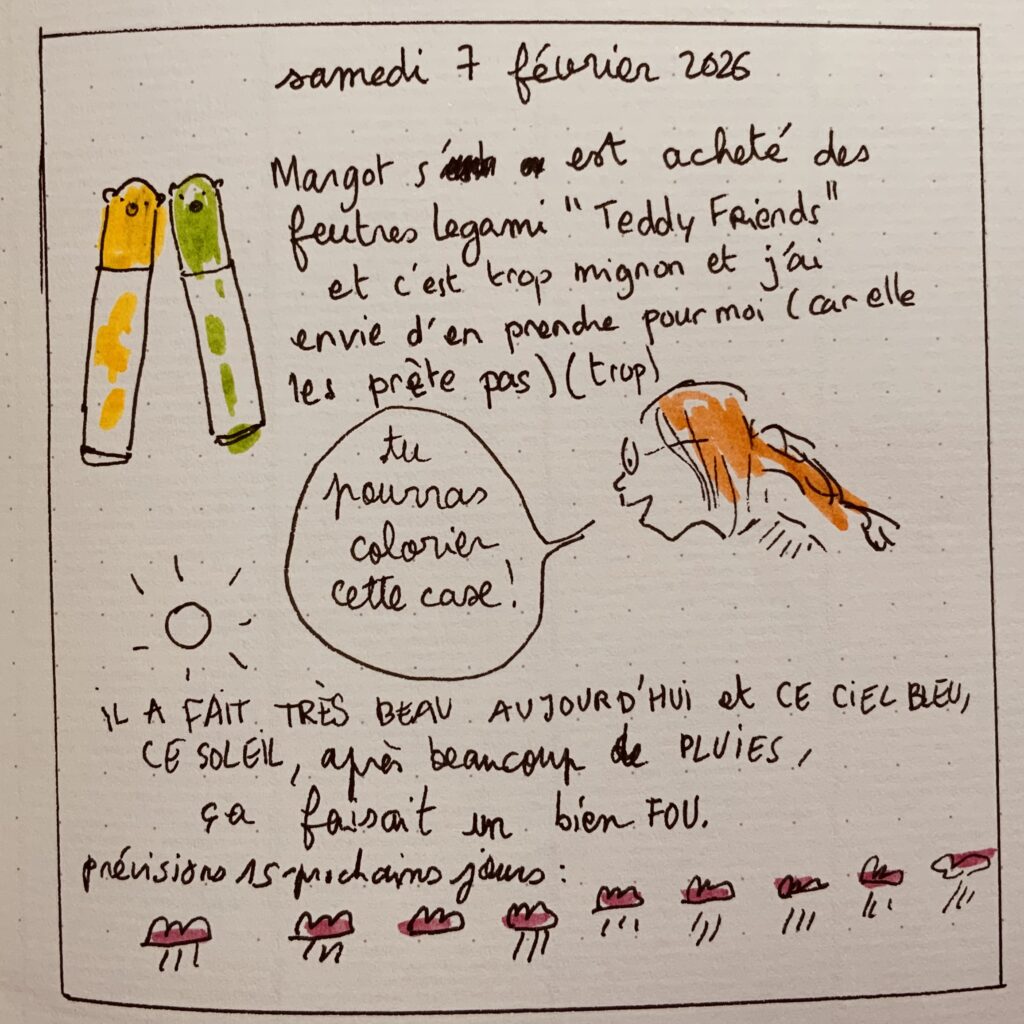 samedi 7 février 2026
Margot s' est acheté des
feutres Legami "Teddy Friends"
et c'est trop mignon et j'ai
envie d'en prendre pour moi (car elle
les prète pas) (trop)
tu
pourras
colorier
cette case !
IL A FAIT TRÈS BEAU AUJOURD'HUI et CE CIEL BLEU,
CE SOLEIL, après beaucoup de PLUIES,
ça faisait un bien FOU.
prévisions 15 prochains jours :